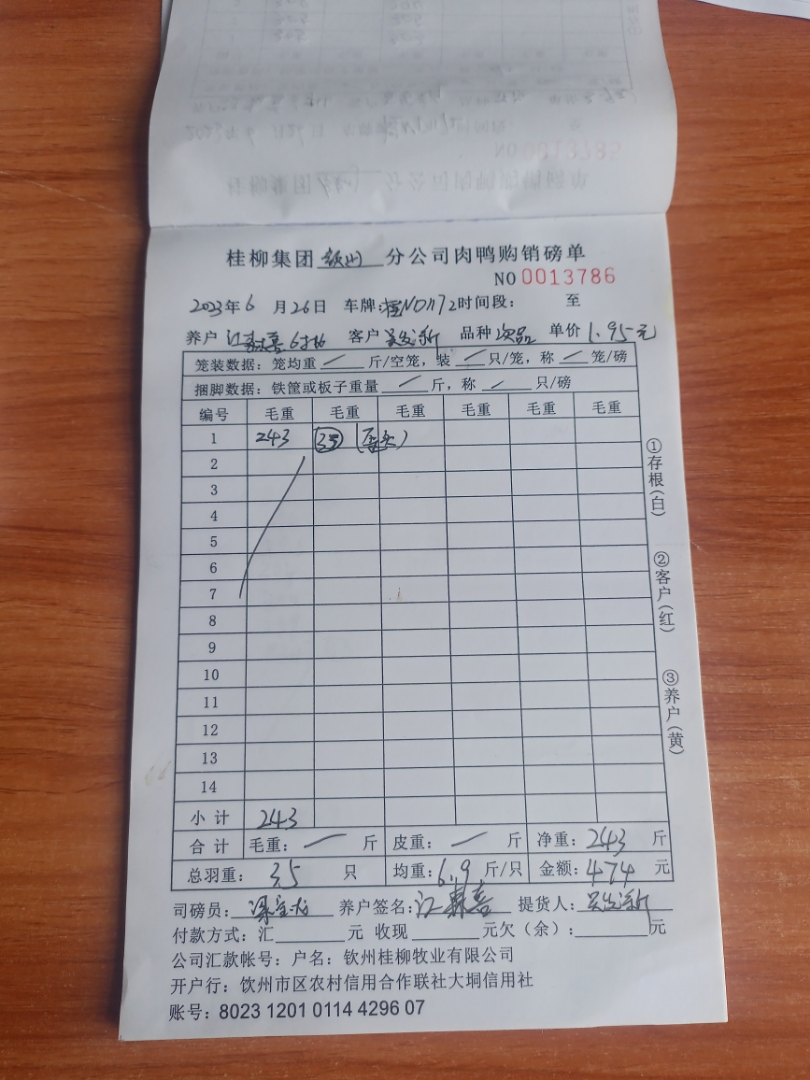 桂柳集团 钦州 分公司肉鸭购销磅单
NO 0013786
2023年6月26日 车牌:桂N01172 时间段: 至
养户 江寿喜6批 客户 吴发新 品种 次品 单价 1.95元
笼装数据: 笼均重 / 斤/空笼, 装 / 只/笼, 称 / 笼/磅
捆脚数据: 铁筐或板子重量 / 斤, 称 / 只/磅
编号 毛重 毛重 毛重 毛重 毛重 毛重
1 243 35
2
3
4
5
6
7
8
9
10
11
12
13
14
小计 243
合计 毛重: / 斤 皮重: / 斤 净重: 243 斤
总羽重: 35 只 均重: 6.9 斤/只 金额: 474 元
司磅员: 养户签名: 江寿喜 提货人: 吴发新
付款方式: 汇 元 收现 元欠(余): 元
公司汇款帐号: 户名: 钦州桂柳牧业有限公司
开户行: 钦州市区农村信用合作联社大垌信用社
账号: 8023 1201 0114 4296 07
①存根(白)
②客户(红)
③养户(黄)